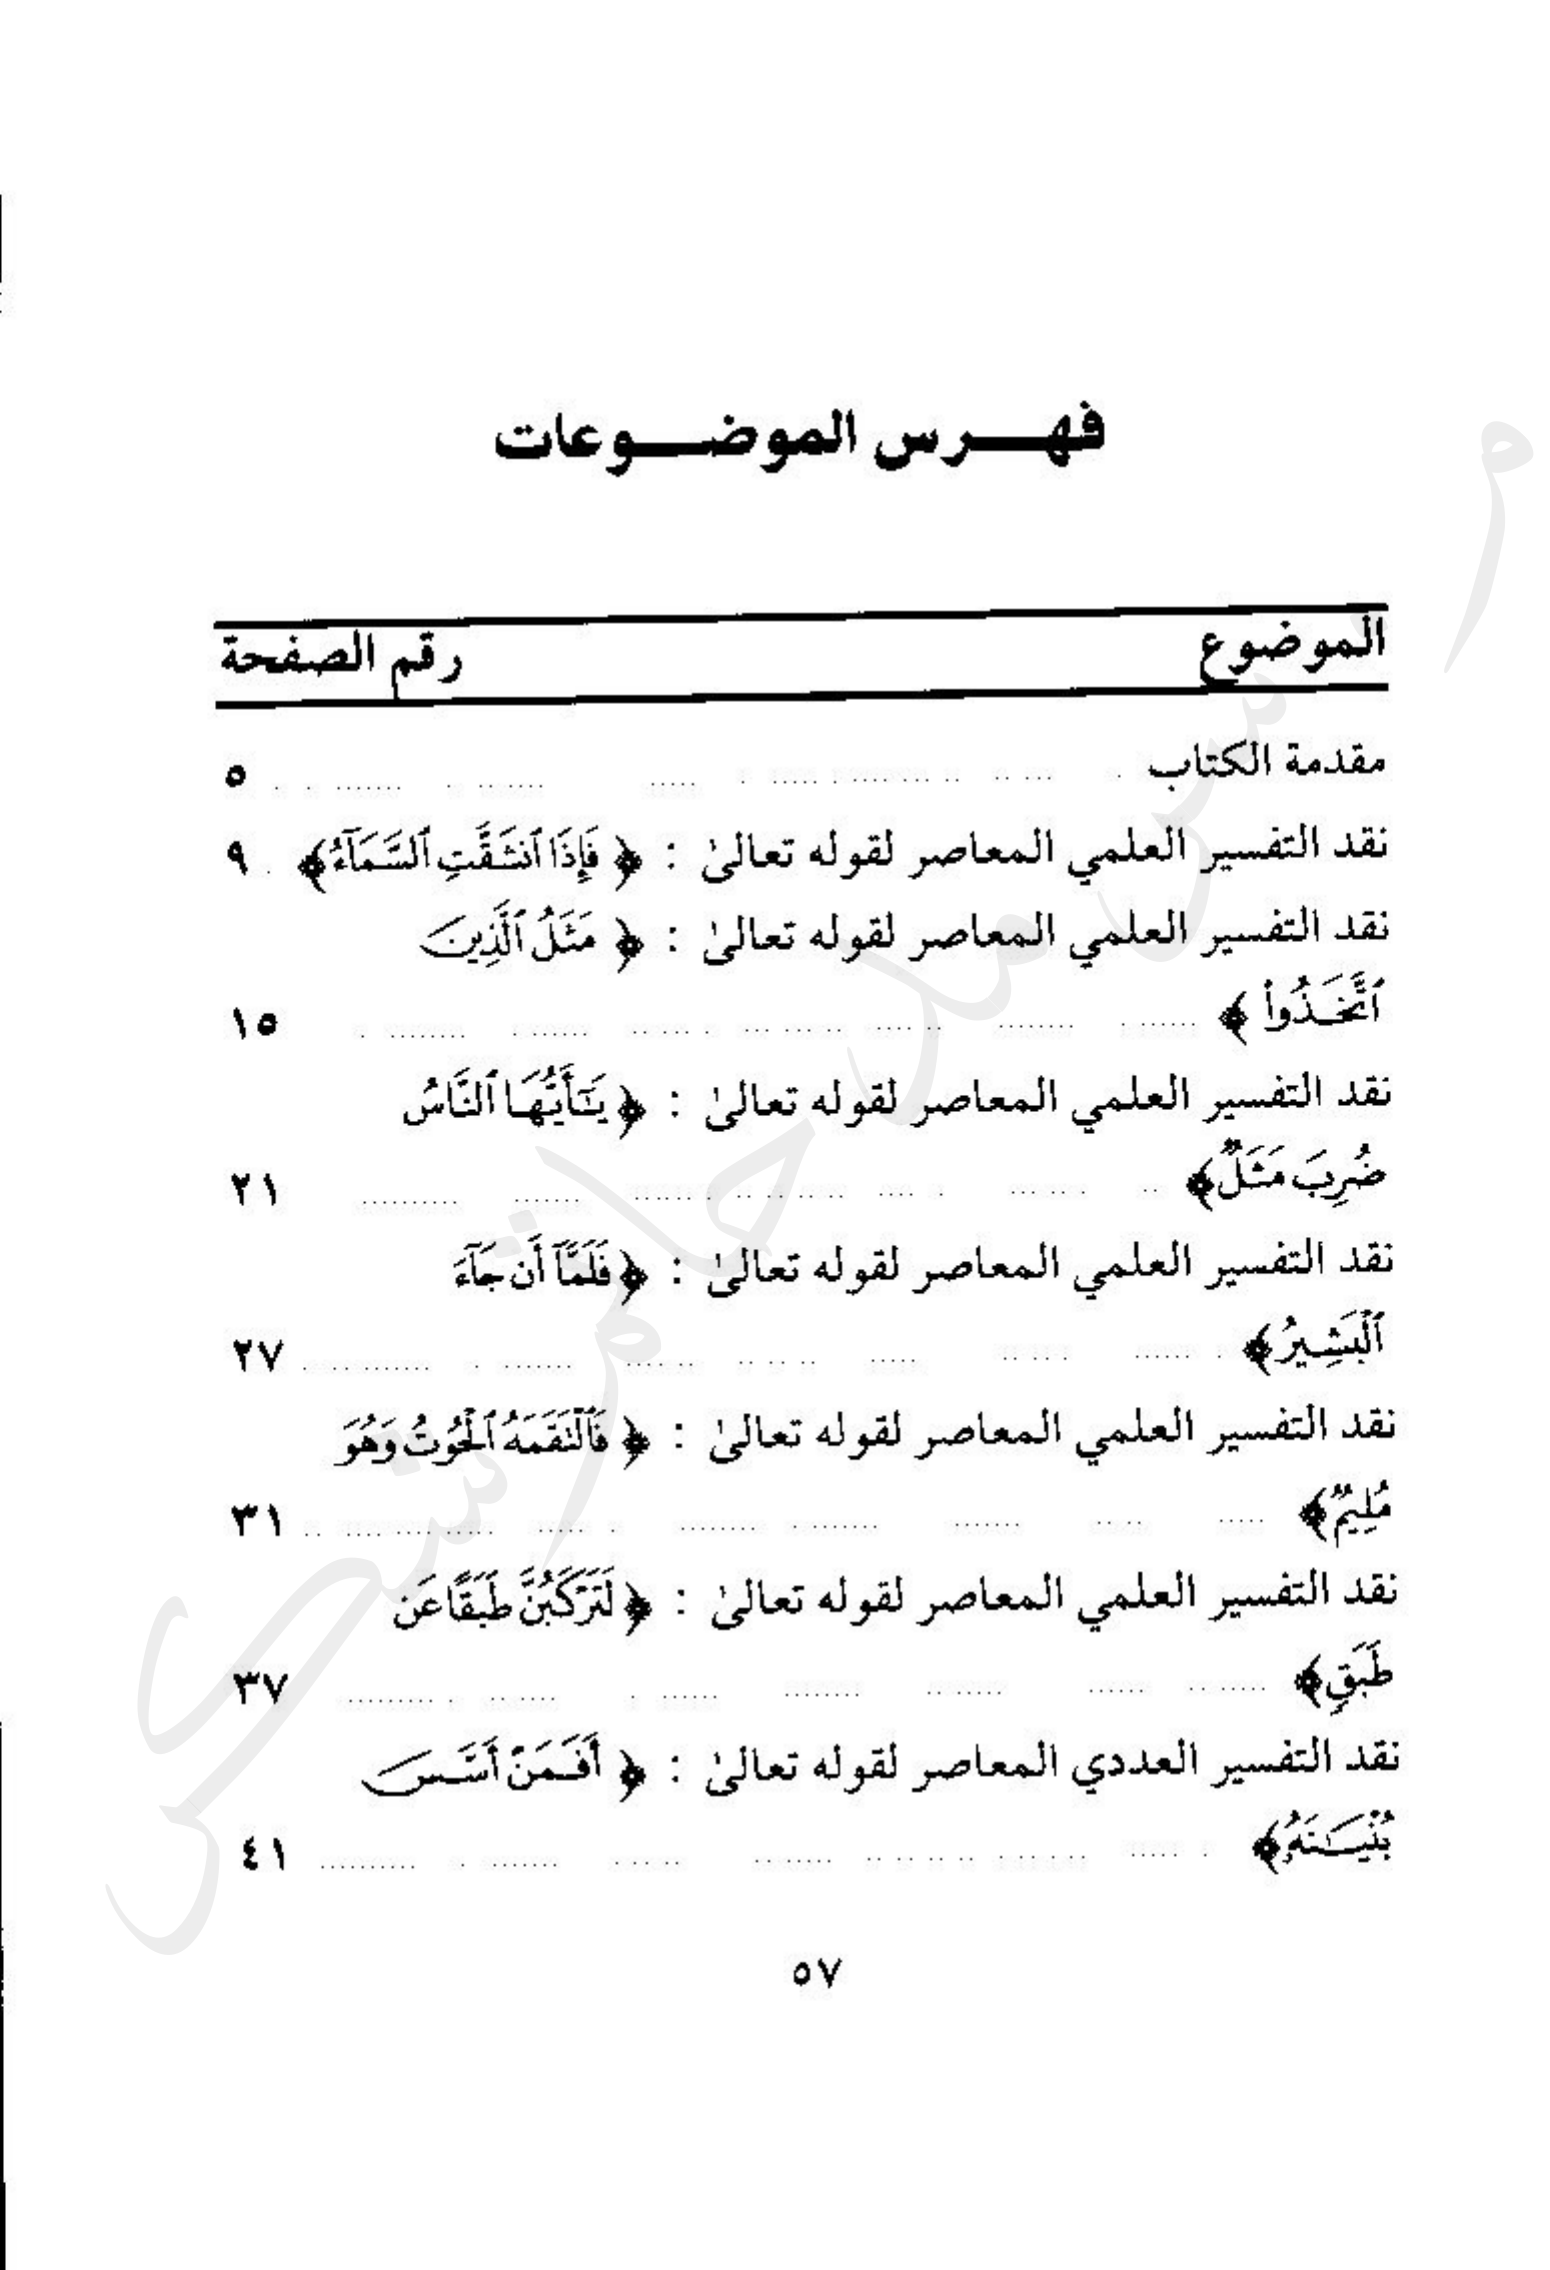 فهرس الموضوعات
الموضوع رقم الصفحة
مقدمة الكتاب ٥
نقد التفسير العلمي المعاصر لقوله تعالىٰ : ﴿ فَإِذَا ٱنشَقَّتِ ٱلسَّمَآءُ﴾ ٩
نقد التفسير العلمي المعاصر لقوله تعالىٰ : ﴿ مَثَلُ ٱلَّذِينَ
ٱتَّخَذُوا۟ ﴾ ١٥
نقد التفسير العلمي المعاصر لقوله تعالىٰ : ﴿ يَـٰٓأَيُّهَا ٱلنَّاسُ
ضُرِبَ مَثَلٌ﴾ ٢١
نقد التفسير العلمي المعاصر لقوله تعالىٰ : ﴿ فَلَمَّآ أَن جَآءَ
ٱلْبَشِيرُ﴾ ٢٧
نقد التفسير العلمي المعاصر لقوله تعالىٰ : ﴿ فَٱلْتَقَمَهُ ٱلْحُوتُ وَهُوَ
مُلِيمٌ﴾ ٣١
نقد التفسير العلمي المعاصر لقوله تعالىٰ : ﴿ لَتَرْكَبُنَّ طَبَقًا عَن
طَبَقٍ﴾ ٣٧
نقد التفسير العددي المعاصر لقوله تعالىٰ : ﴿ أَفَمَنْ أَسَّسَ
بُنْيَـٰنَهُۥ﴾ ٤١
٥٧